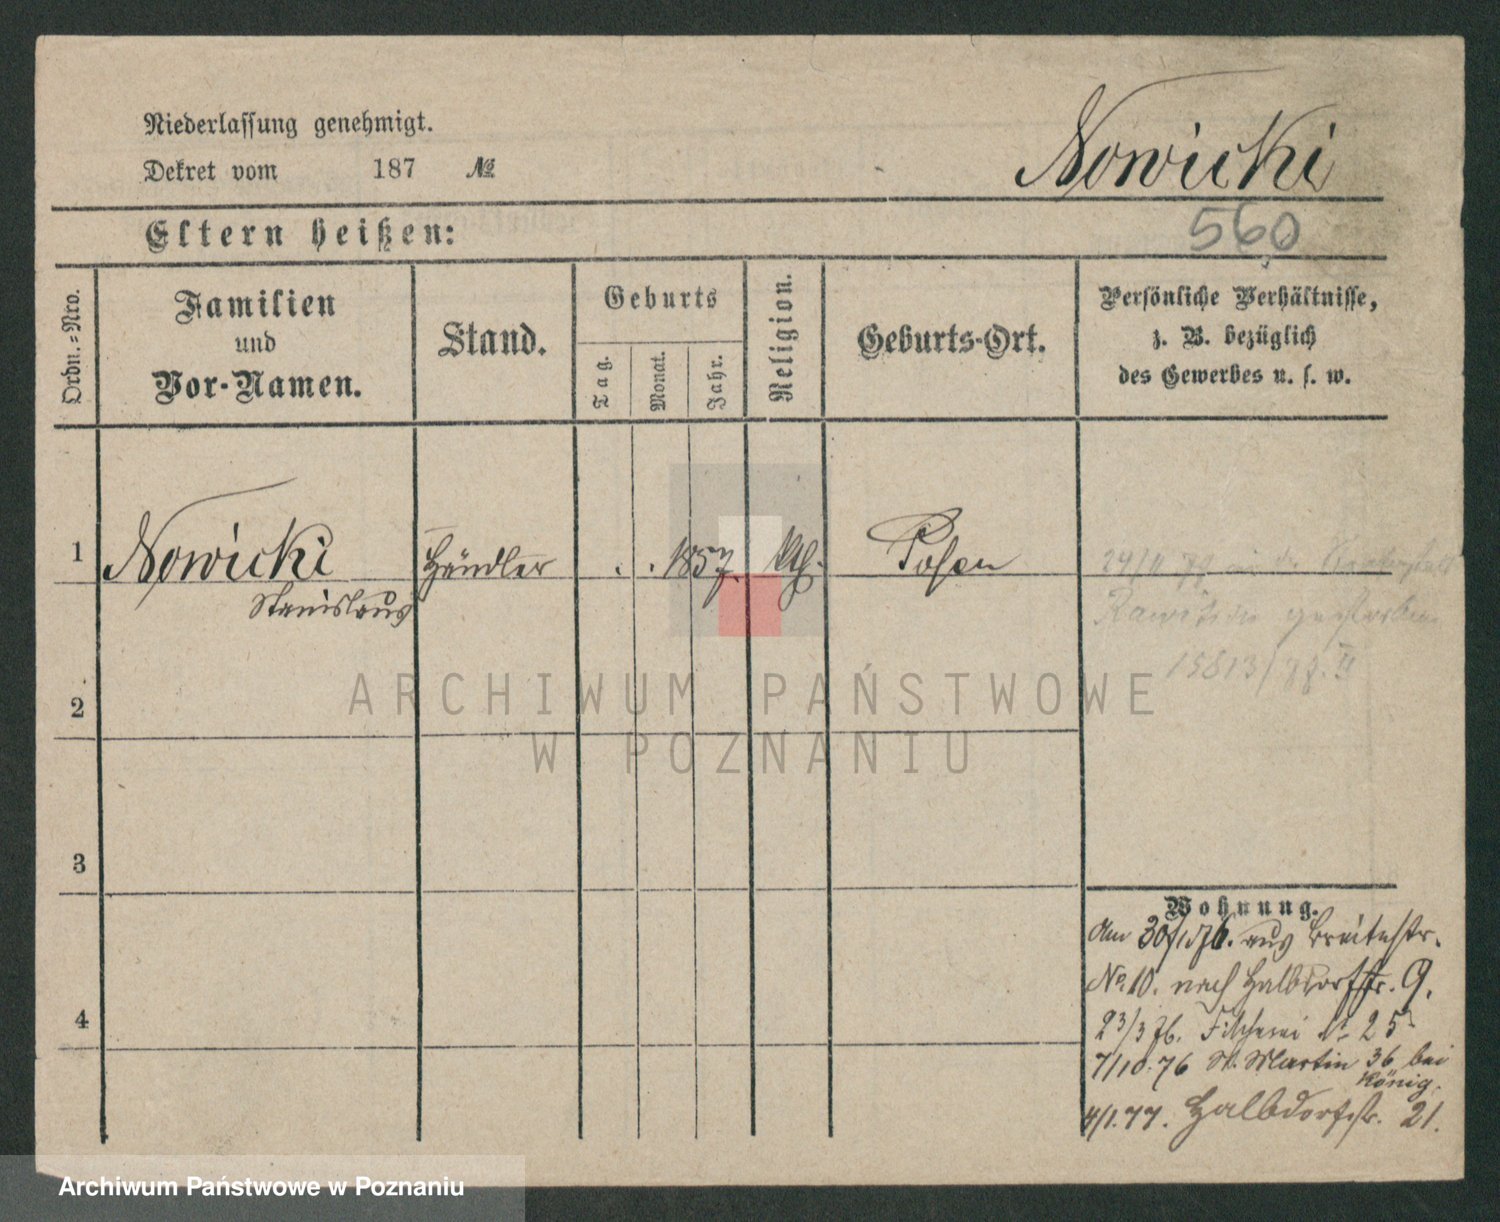 Niederlassung genehmigt.
Dekret vom 187 №
Nowicki
560
Eltern heißen:
Ordn.=Nro.
Familien
und
Vor-Namen.
Stand.
Geburts
Tag.
Monat.
Jahr.
Religion.
Geburts-Ort.
Persönliche Verhältnisse,
z. B. bezüglich
des Gewerbes u. s. w.
1 Nowicki Händler . . 1857. kth. Posen
Stanislaus
24/11 77 in der
Rawitsch gestorben
15813/77. II
2
3
4
Wohnung.
Am 30/1 76. aus Breitestr.
No. 10. nach Halbdorfstr. 9.
23/3 76. Fischerei No 25
7/10. 76 St. Martin 36 bei
König.
4/1. 77. Halbdorfstr. 21.
ARCHIWUM PAŃSTWOWE
W POZNANIU
Archiwum Państwowe w Poznaniu